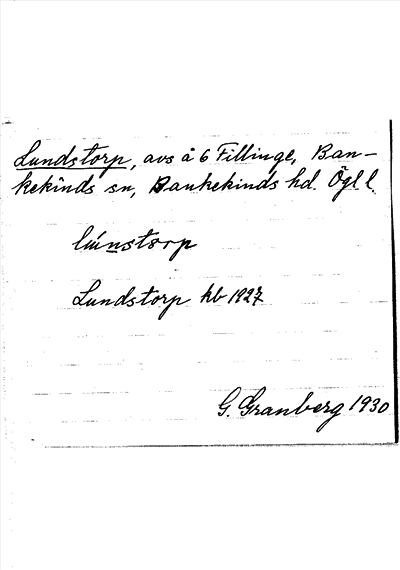 Lundstorp, avs å 6 Fillinge, Ban-
kekinds sn, Bankekinds hd. Ögl l.
lúnstorp
Lundstorp kb 1927
G. Granberg 1930